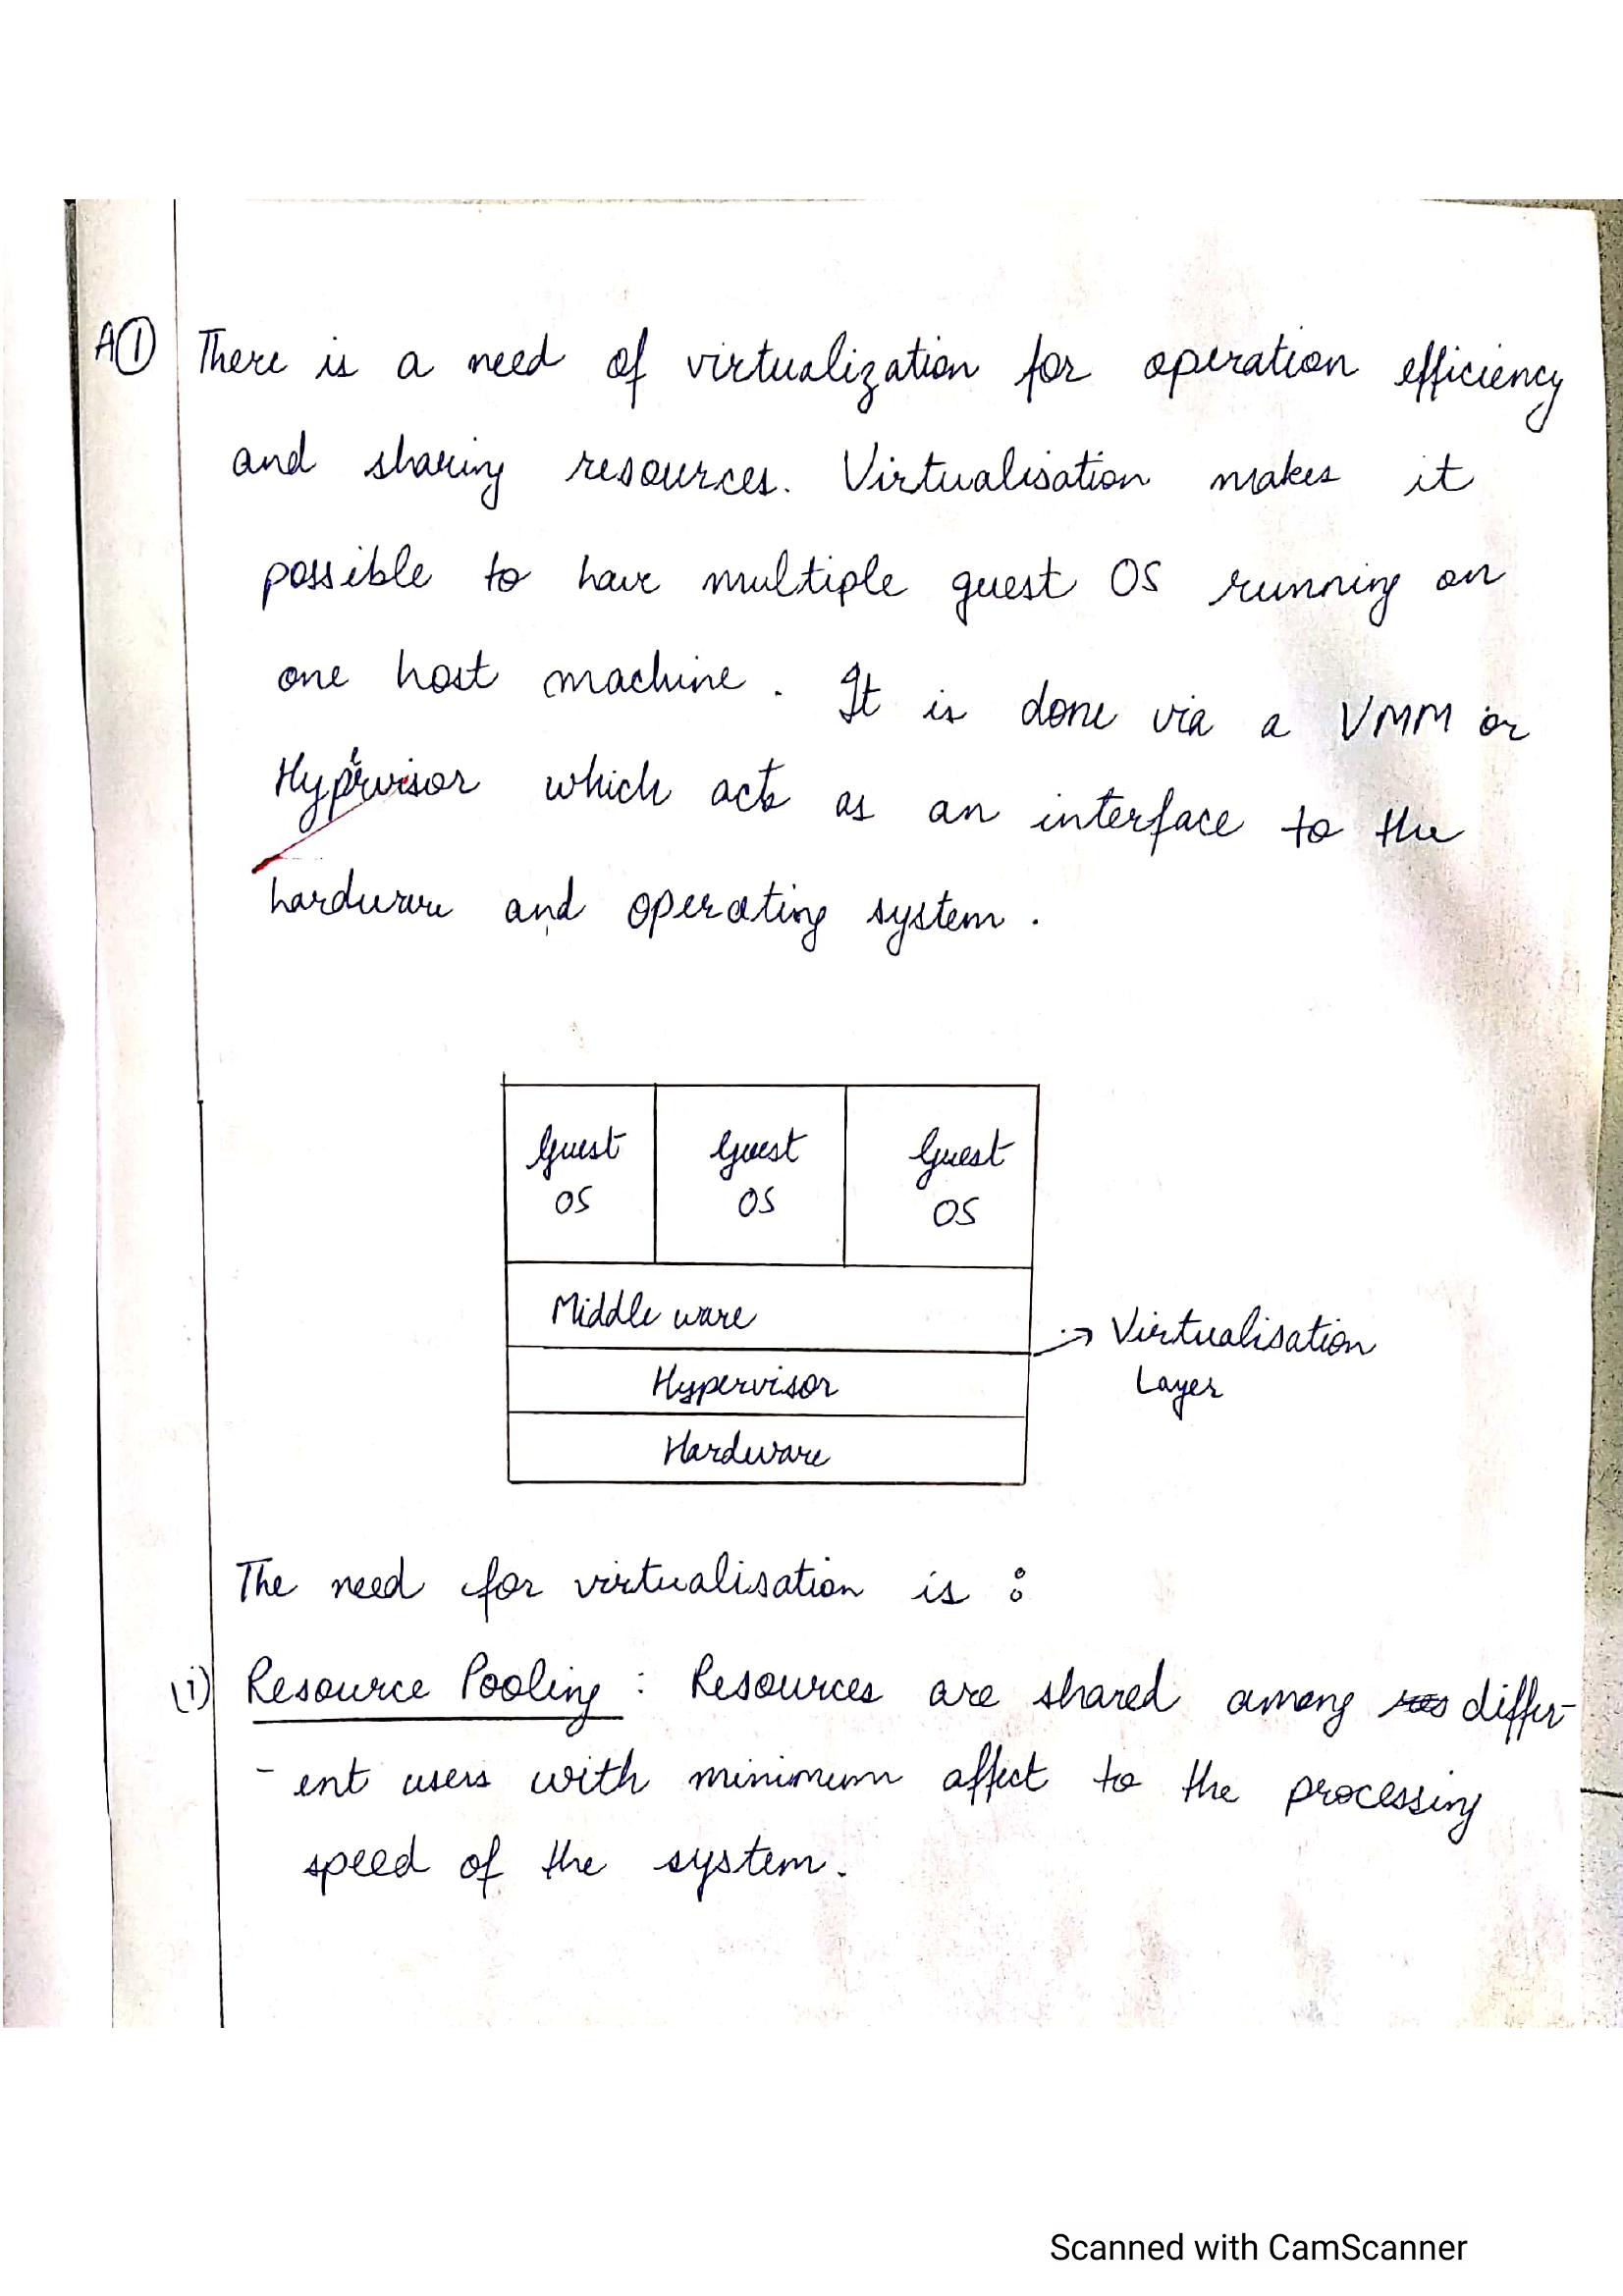 A① There is a need of virtualization for operation efficiency
and sharing resources. Virtualisation makes it
possible to have multiple guest OS running on
one host machine. It is done via a VMM or
Hypervisor which acts as an interface to the
hardware and operating system.
Guest OS Guest OS Guest OS
Middle ware
→ Virtualisation
Layer
Hypervisor
Hardware
The need for virtualisation is :
(i) Resource Pooling : Resources are shared among differ-
- ent users with minimum affect to the processing
speed of the system.
Scanned with CamScanner